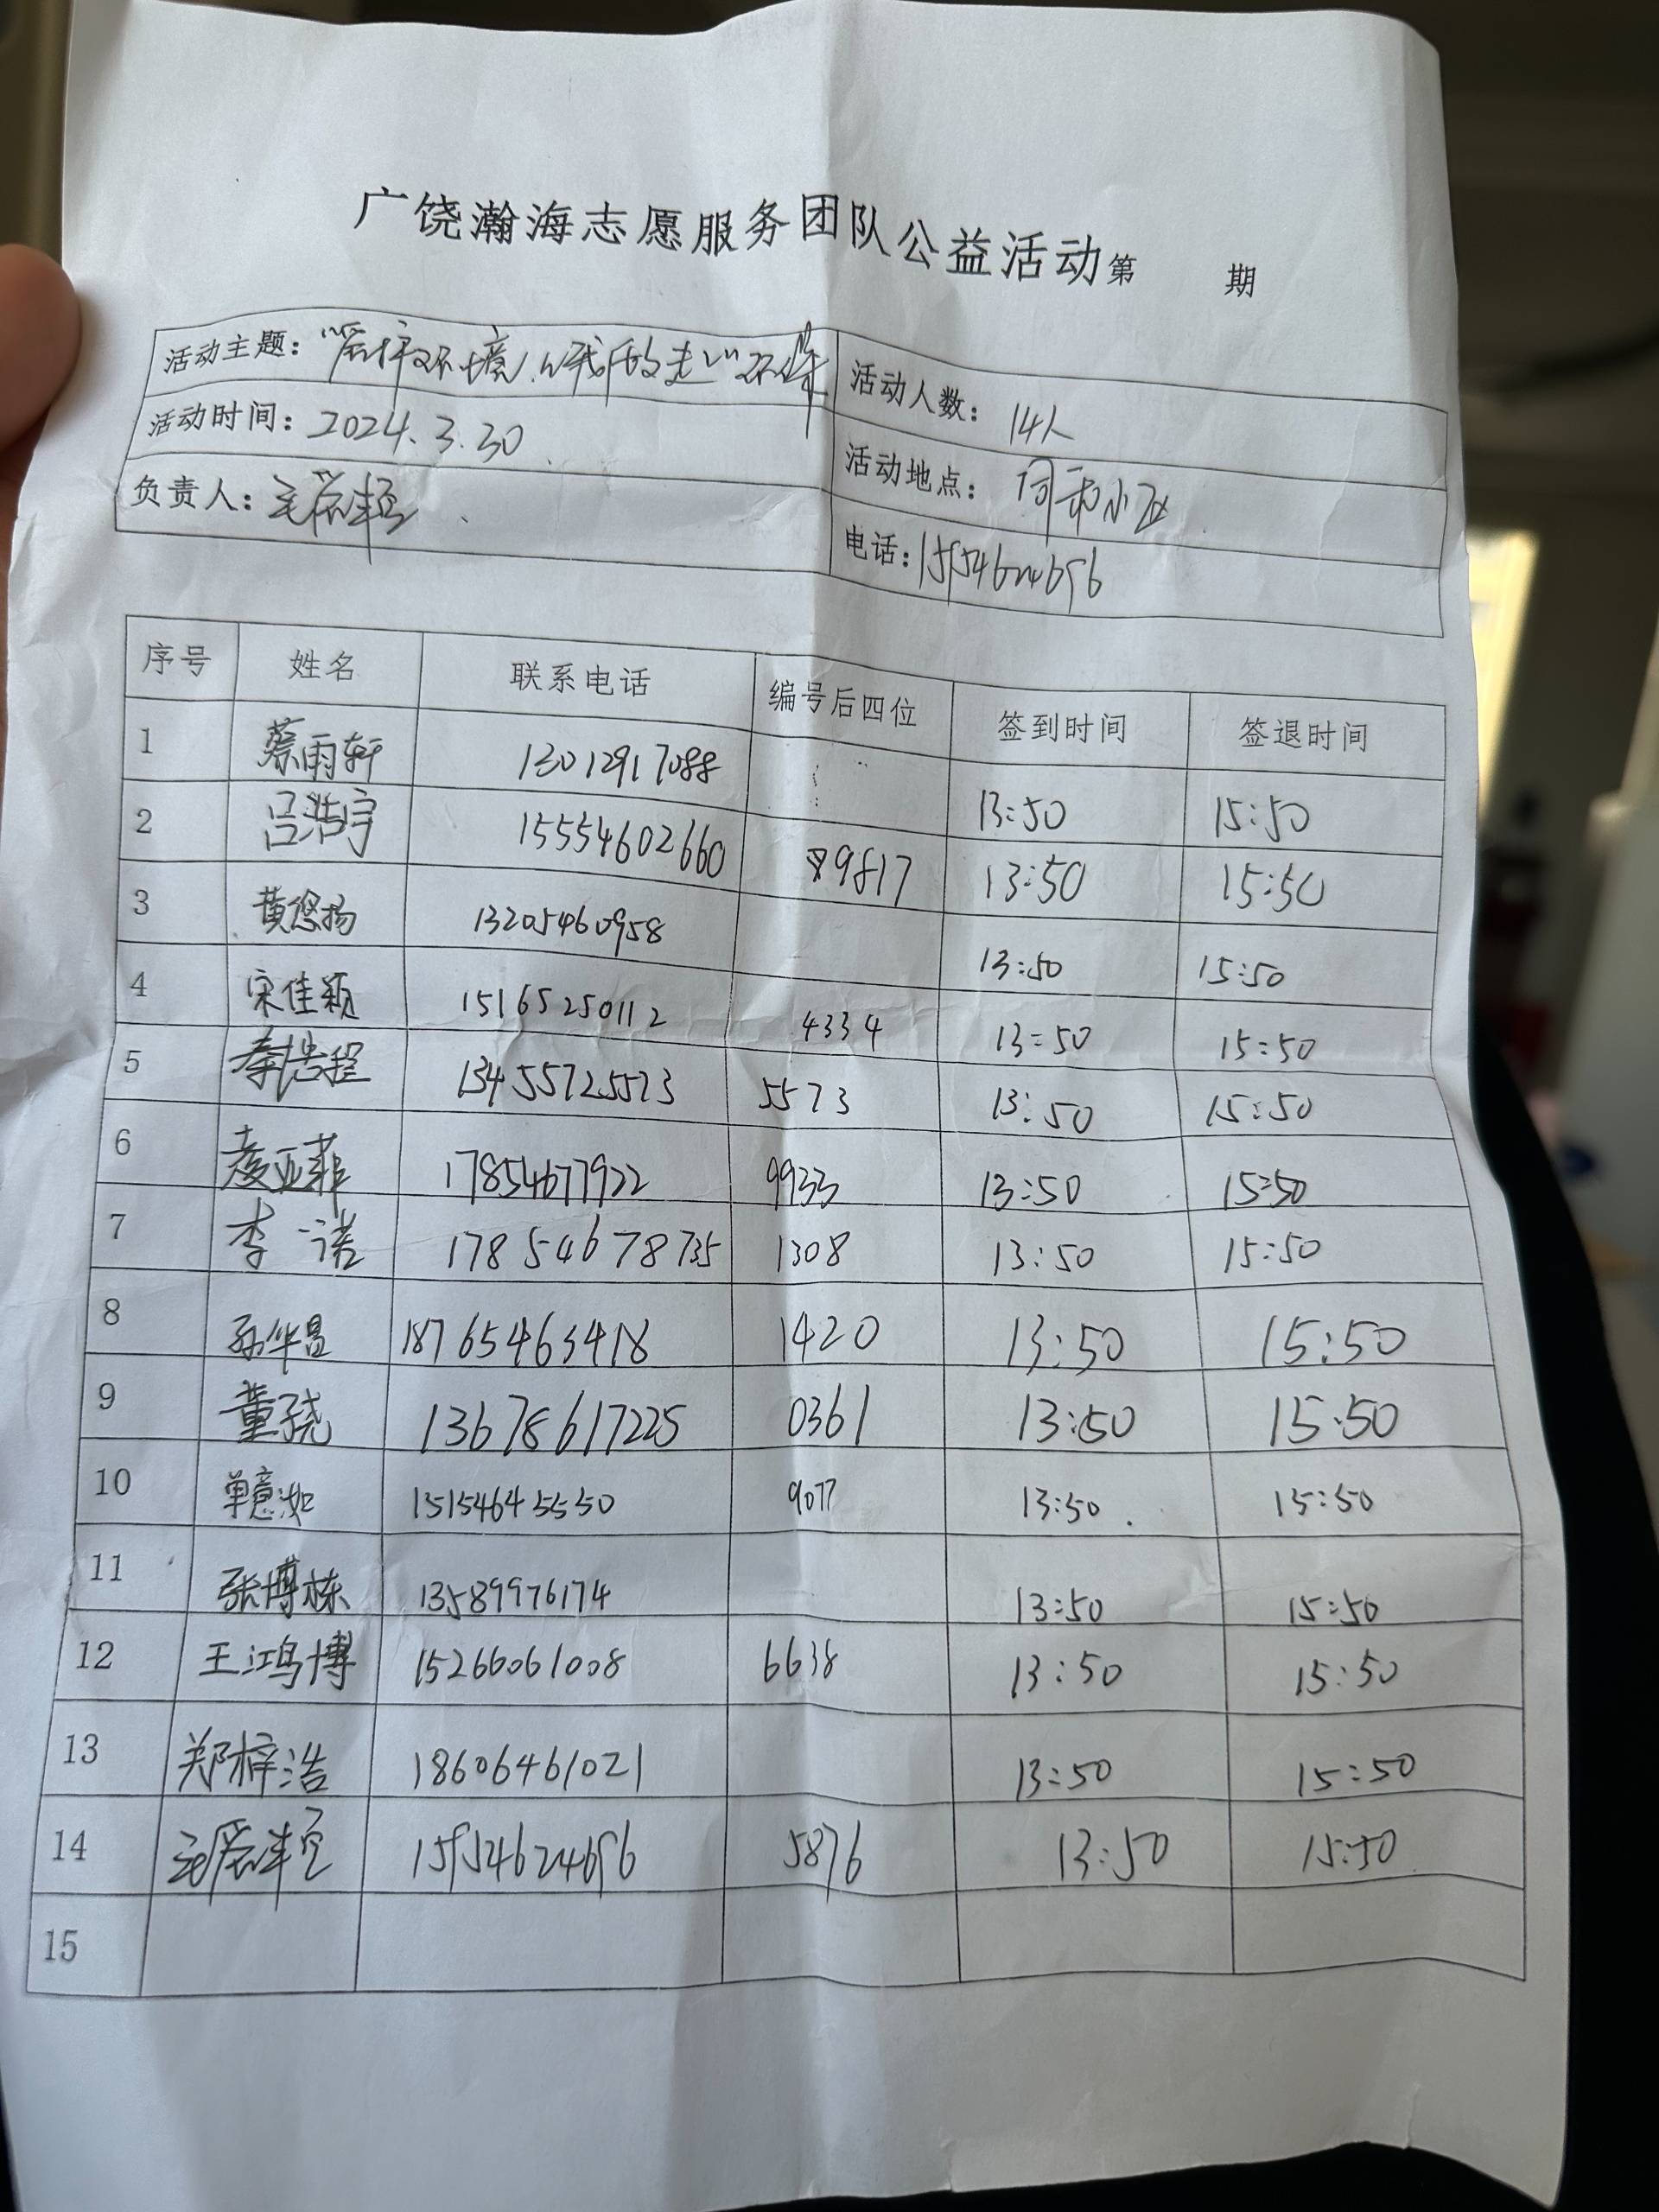 广饶瀚海志愿服务团队公益活动第 期
活动主题：“爱护环境，从我做起”环保
活动人数：14人
活动时间：2024.3.30
活动地点：同和小区
负责人：
电话：15954624696
序号 姓名 联系电话 编号后四位 签到时间 签退时间
1 蔡雨轩 13012917088 13:50 15:50
2 吕浩宇 15554602660 9817 13:50 15:50
3 黄悠扬 13205460958 13:50 15:50
4 宋佳颖 15165250112 4334 13:50 15:50
5 秦浩程 13455725573 5573 13:50 15:50
6 亚菲 17854677922 9933 13:50 15:50
7 李一诺 17854678735 1308 13:50 15:50
8 孙华昌 18765463418 1420 13:50 15:50
9 董子尧 13678617225 0361 13:50 15:50
10 单意汝 15154645550 9077 13:50 15:50
11 张博栋 13589976174 13:50 15:50
12 王鸿博 15266061008 6638 13:50 15:50
13 郑梓浩 18606461021 13:50 15:50
14 15954624696 5876 13:50 15:50
15